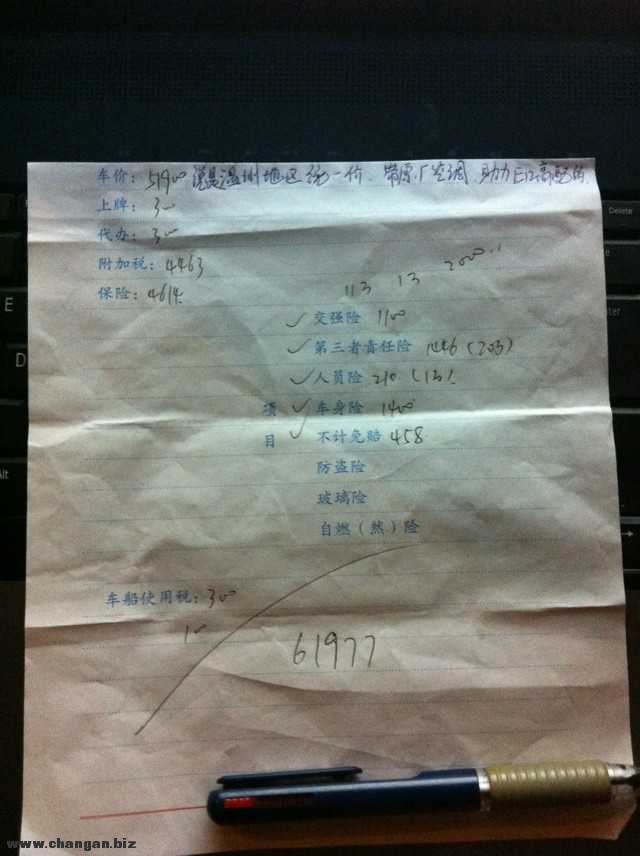 车价：51900 说是温州地区统一价、带原厂空调、助力 E12高配的.
上牌：300
代办：300
附加税：4463
保险：4614.
11万 1万 2000..
✓交强险 1100
✓第三者责任险 1446（20万）
✓人员险 210.（1万）.
项 ✓车身险 1400
目 ✓不计免赔 458.
防盗险
玻璃险
自燃（然）险
车船使用税：300
100
61977
Delete
E
D
Alt
www.changan.biz